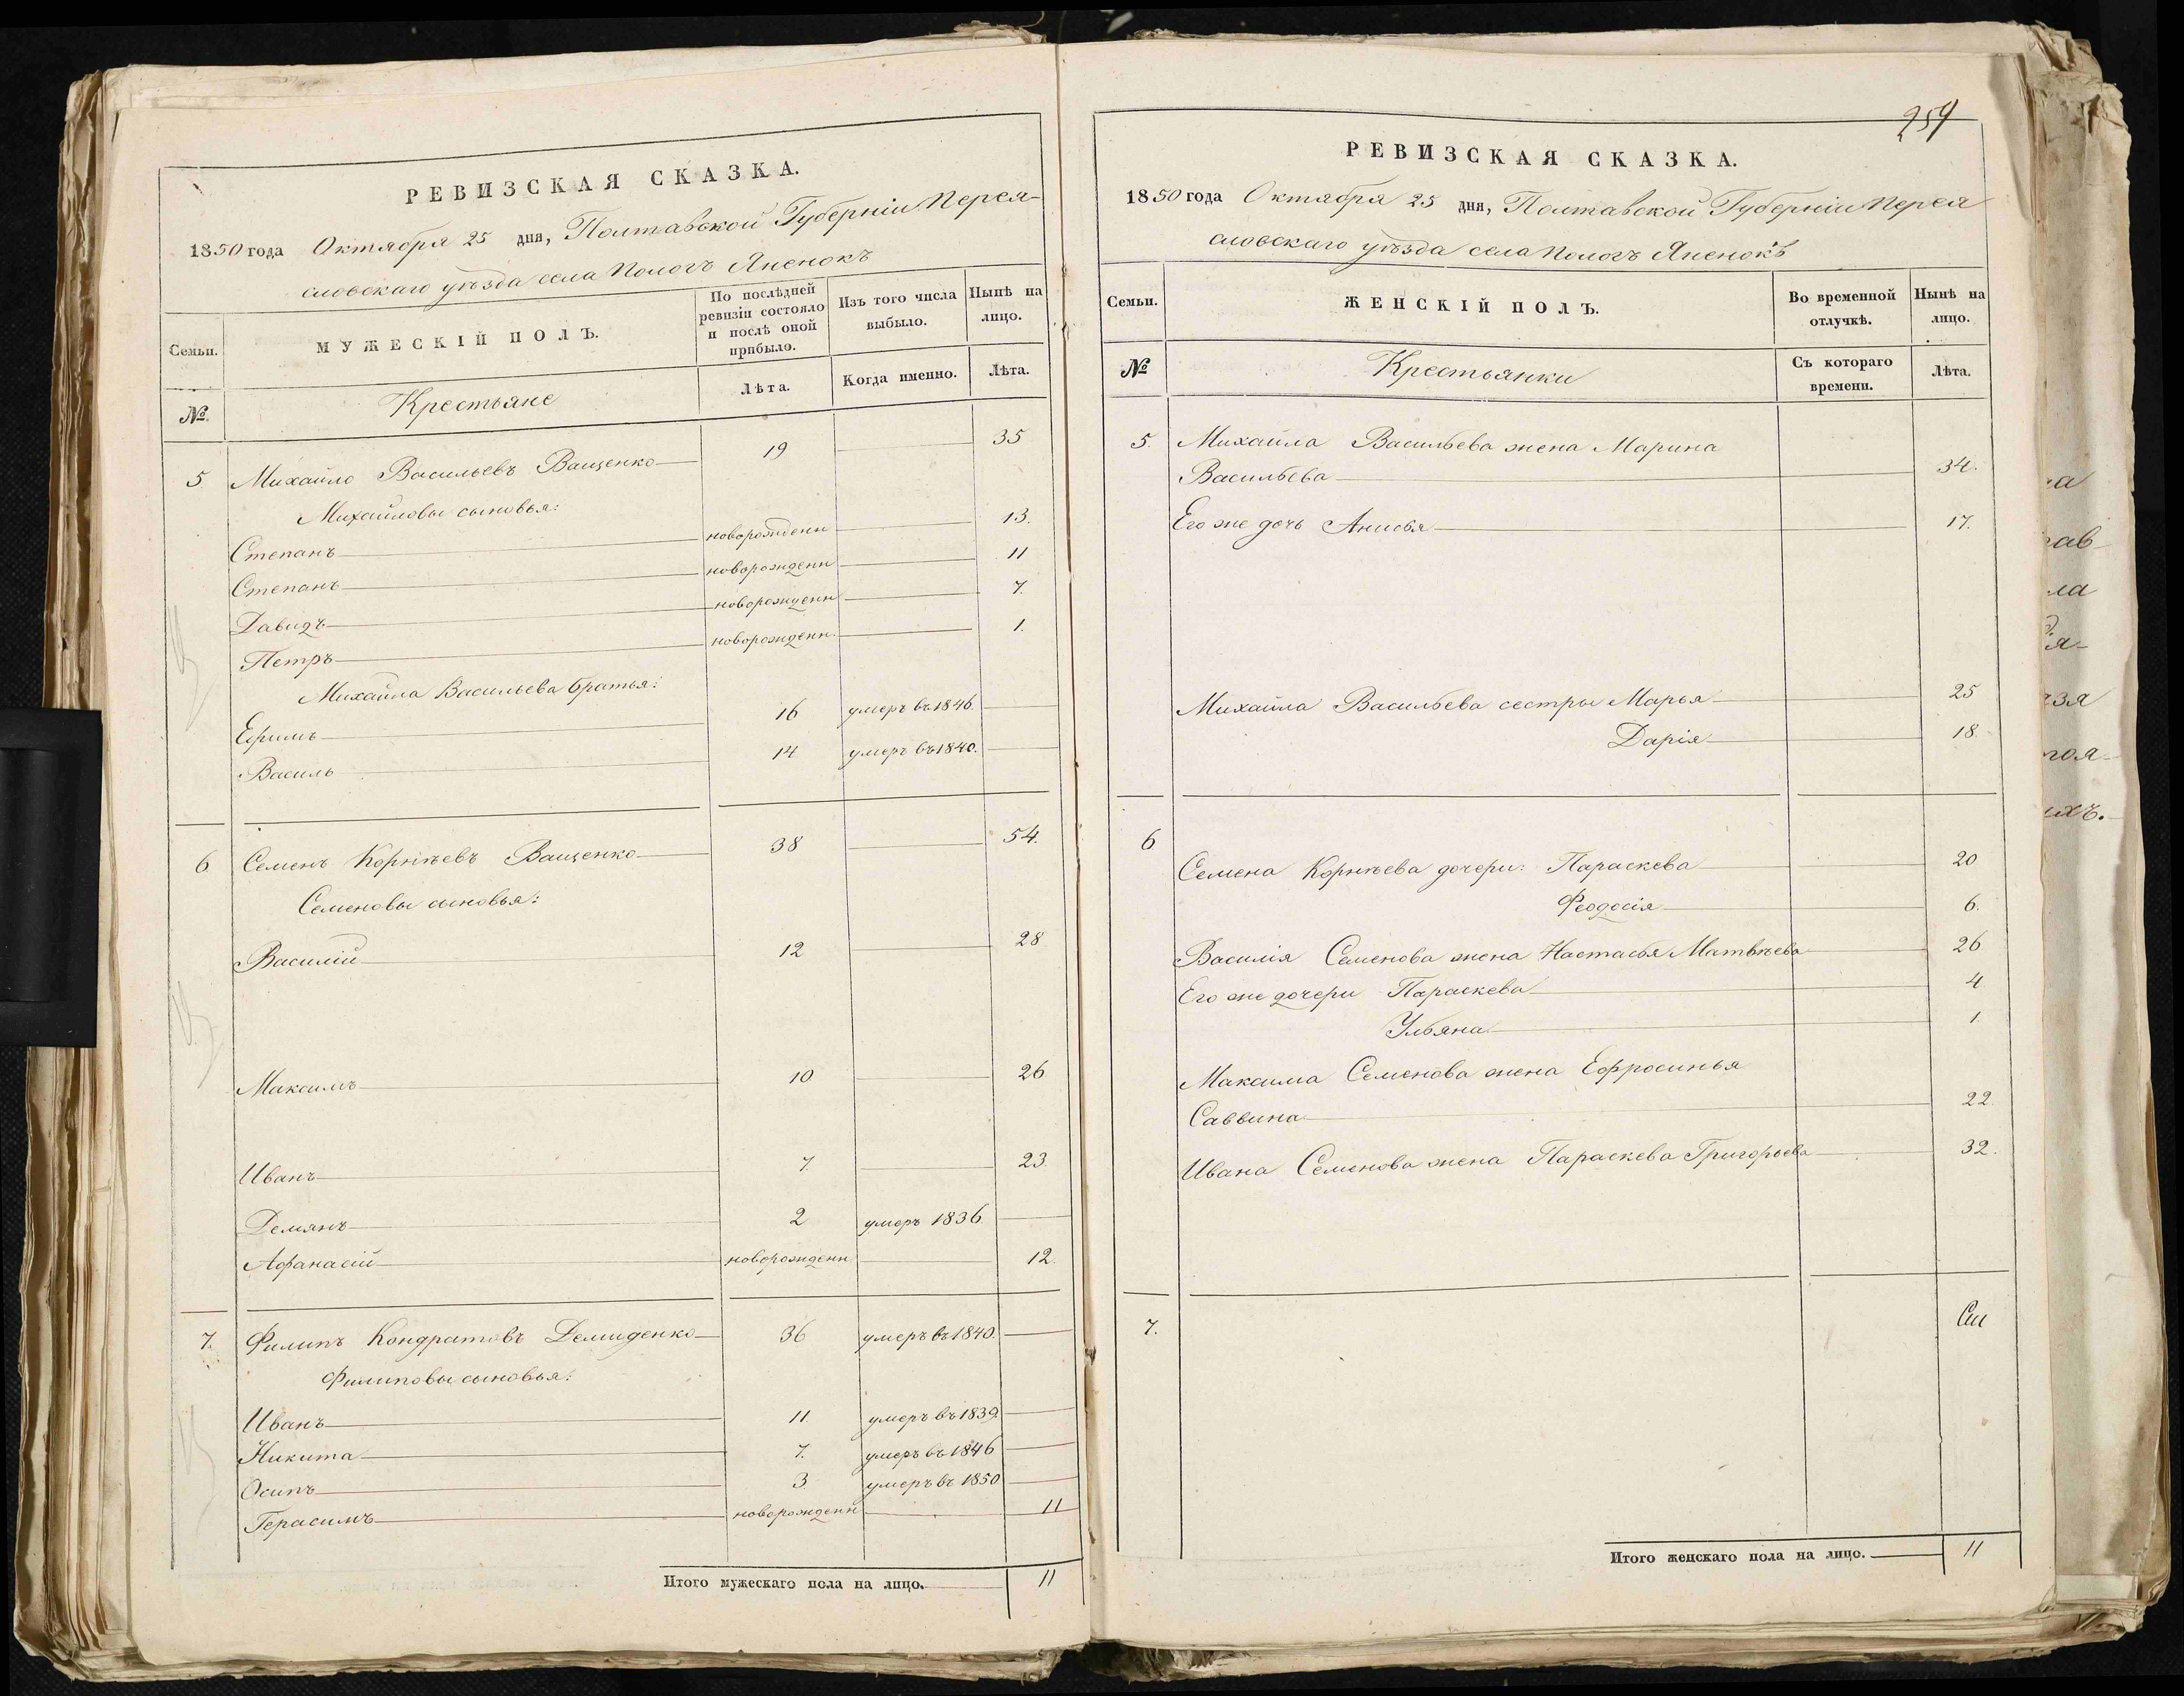 РЕВИЗСКАЯ СКАЗКА.
1850 года Октября 25 дня, Полтавской Губерніи Перея-
словскаго уѣзда села Пологъ Яненокъ
Семьи.
МУЖЕСКІЙ ПОЛЪ.
По послѣдней ревизіи состояло и послѣ оной прибыло.
Изъ того числа выбыло.
Нынѣ на лицо.
№
Крестьяне
Лѣта.
Когда именно.
Лѣта.
5 Михайло Васильевъ Ващенко 19 35
Михайловы сыновья:
Степанъ новорожденн 13.
Степанъ новорожденн 11
Давидъ новорожденн 7.
Петръ новорожденн. 1.
Михайла Васильева братья:
Ефимъ 16 умеръ въ 1846.
Василь 14 умеръ въ 1840.
6 Семенъ Корнѣевъ Ващенко 38 54.
Семеновы сыновья:
Василій 12 28
Максимъ 10 26
Иванъ 7. 23.
Демянъ 2 умеръ 1836.
Афанасій новорожденн 12.
7. Филипъ Кондратовъ Демиденко 36 умеръ въ 1840.
Филиповы сыновья:
Иванъ 11. умеръ въ 1839.
Никита 7. умеръ въ 1846
Осипъ 3. умеръ въ 1850
Герасимъ новорожденн 11
Итого мужескаго пола на лицо. 11
259
РЕВИЗСКАЯ СКАЗКА.
1850 года Октября 25 дня, Полтавской Губерніи Перея
словскаго уѣзда села Пологъ Яненокъ
Семьи.
ЖЕНСКІЙ ПОЛЪ.
Во временной отлучкѣ.
Нынѣ на лицо.
№
Крестьянки
Съ котораго времени.
Лѣта.
5. Михайла Васильева жена Марина
Васильева 34.
Его же дочь Анисья 17.
Михайла Васильева сестры Марья 25
Дарія 18.
6
Семена Корнѣева дочери: Параскева 20
Феодосія 6.
Василія Семенова жена Настасья Матвѣева 26
Его же дочери Параскева 4
Ульяна 1.
Максима Семенова жена Ефросинья
Саввина 22.
Ивана Семенова жена Параскева Григорьева 32.
7.
Итого женскаго пола на лицо. 11